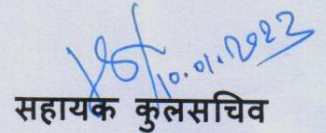 10.01.2023
सहायक कुलसचिव